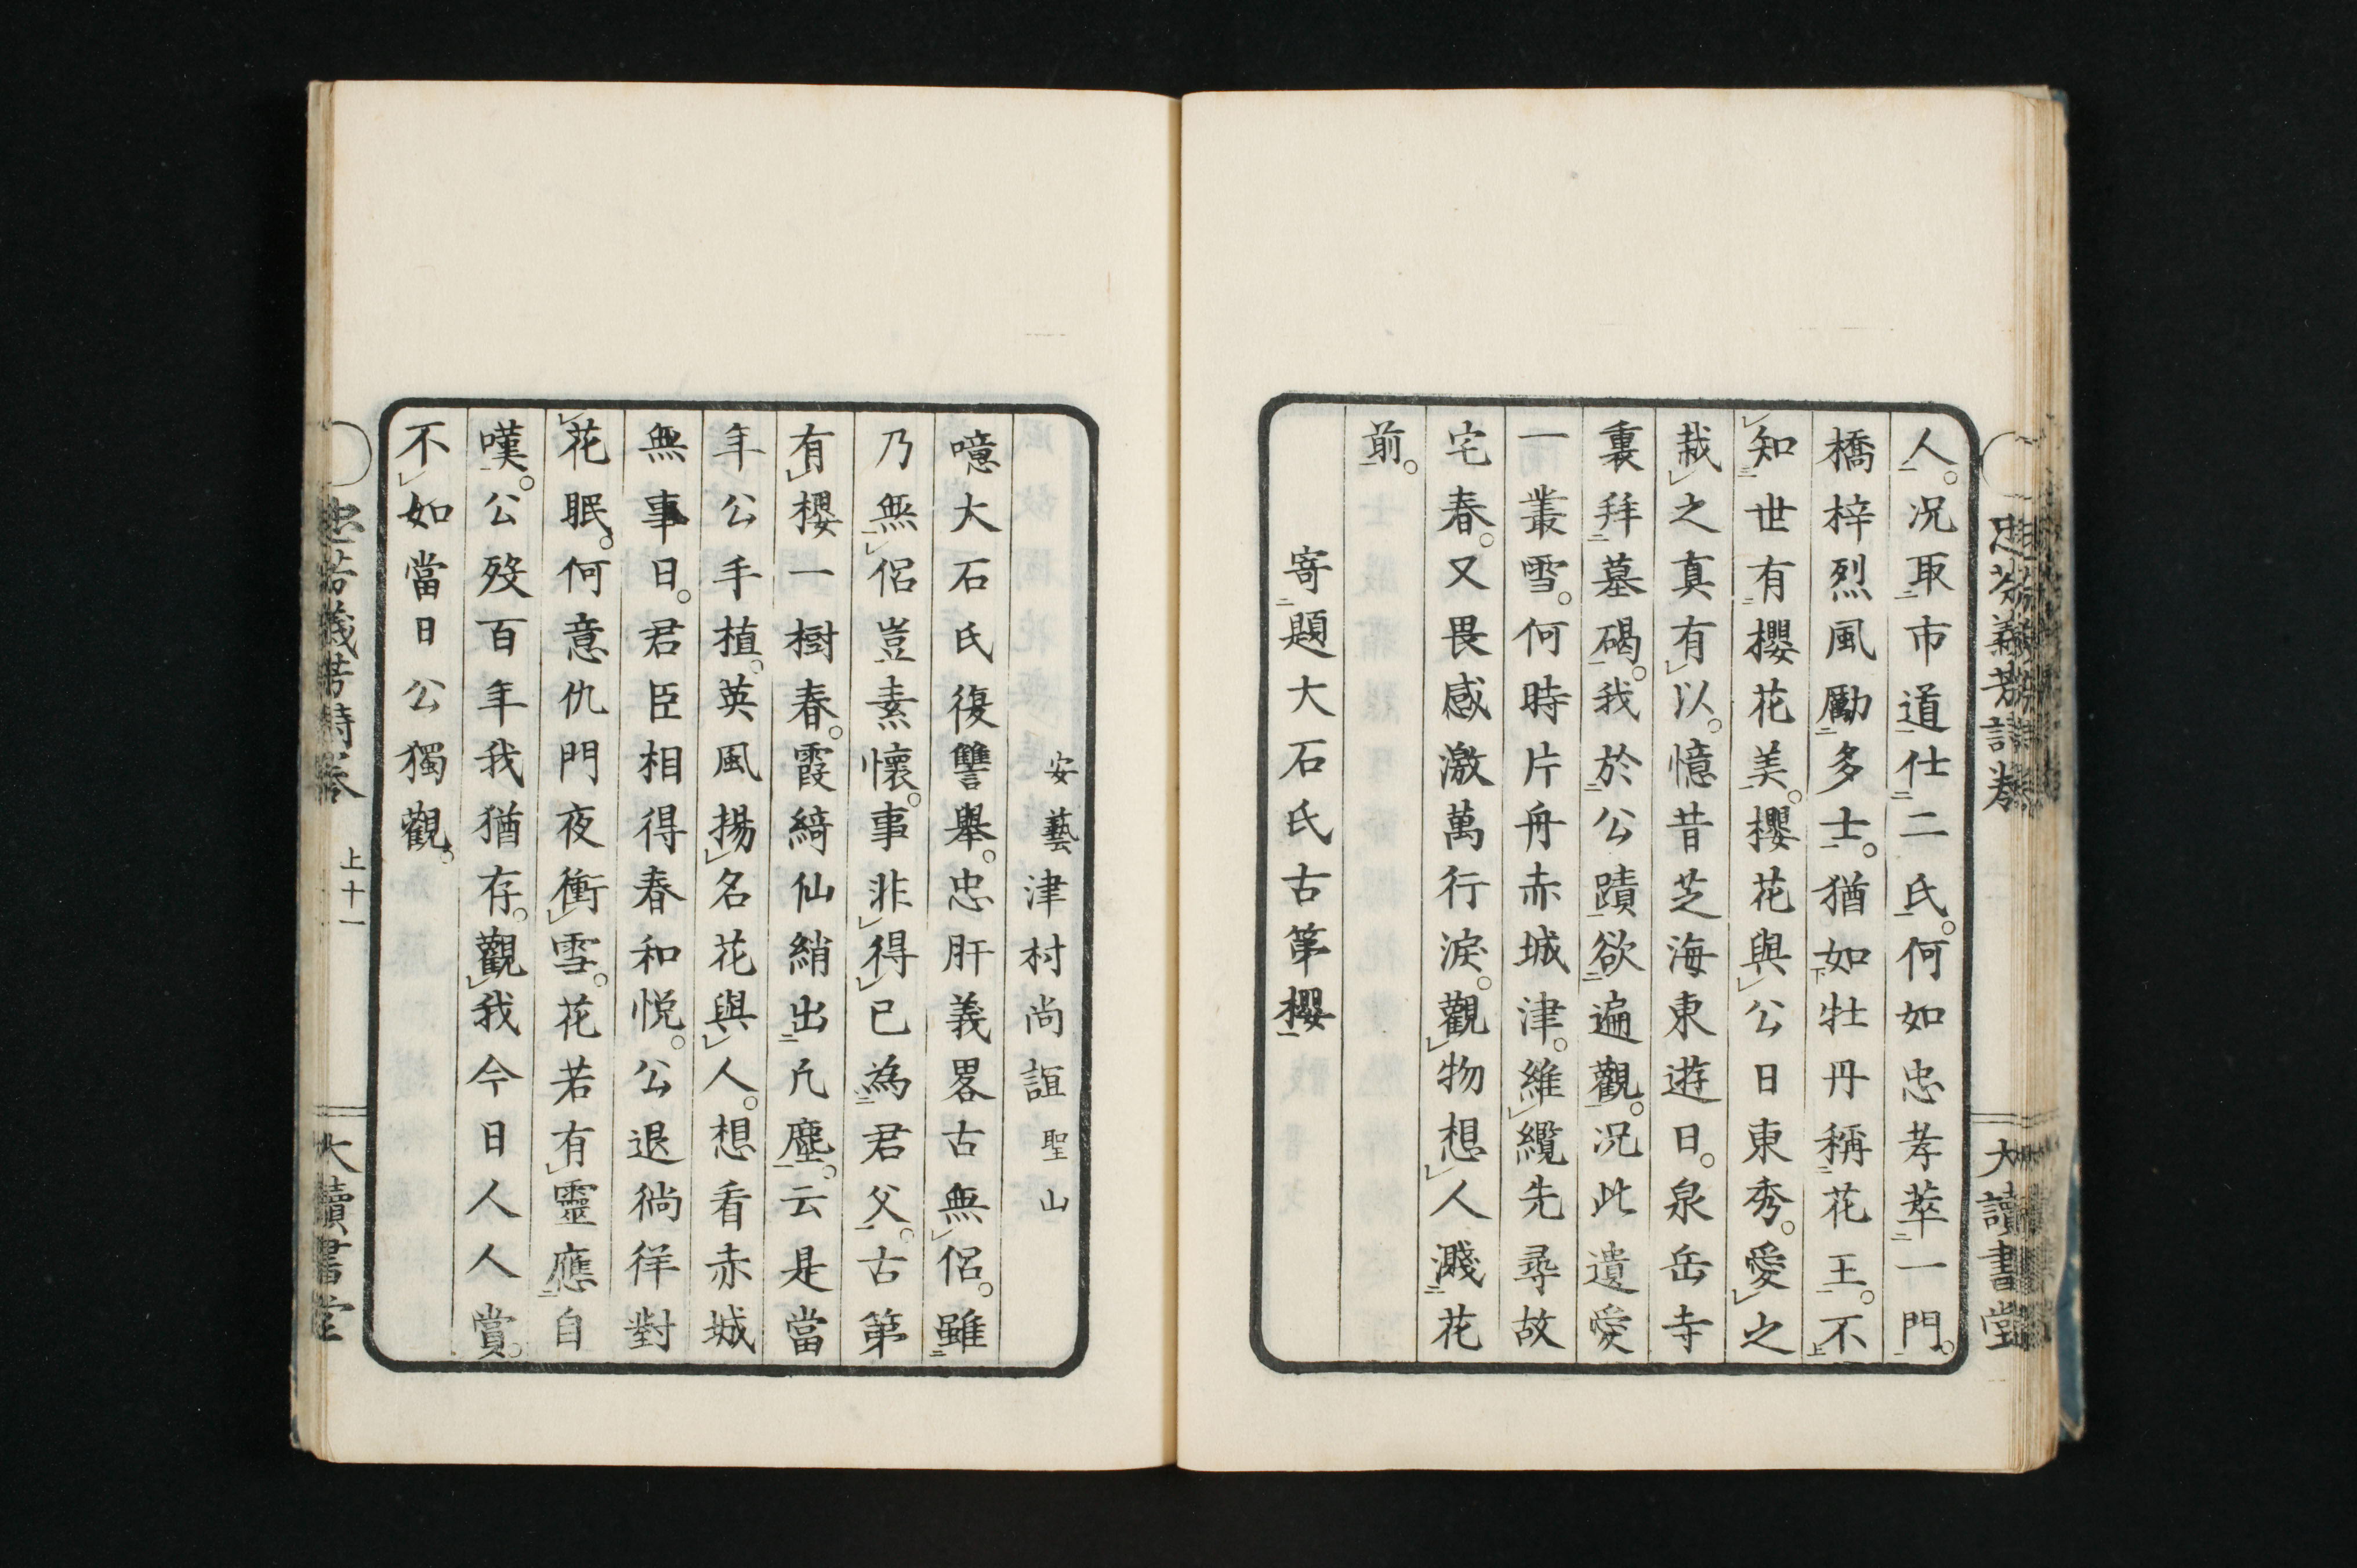 人。况取市道仕二氏。何如忠孝萃一門。
橋梓烈風勵多士。猶如牡丹稱花王。不
知世有櫻花美。櫻花與公日東秀。愛之
栽之真有以。憶昔芝海東遊日。泉岳寺
裏拜墓碣。我於公蹟欲遍觀。况此遺愛
一叢雪。何時片舟赤城津。維纜先尋故
宅春。又畏感激萬行淚。觀物想人濺花
前。
寄題大石氏古第櫻
安藝津村尚誼聖山
噫大石氏復讐舉。忠肝義畧古無侶。雖
乃無侶豈素懷。事非得已為君父。古第
有櫻一樹春。霞綺仙綃出凢塵。云是當
年公手植。英風揚名花與人。想看赤城
無事日。君臣相得春和悦。公退徜徉對
花眠。何意仇門夜衝雪。花若有靈應自
嘆。公歿百年我猶存。觀我今日人人賞。
不如當日公獨觀。
忠芬義芳詩卷 上十一 大讀書堂